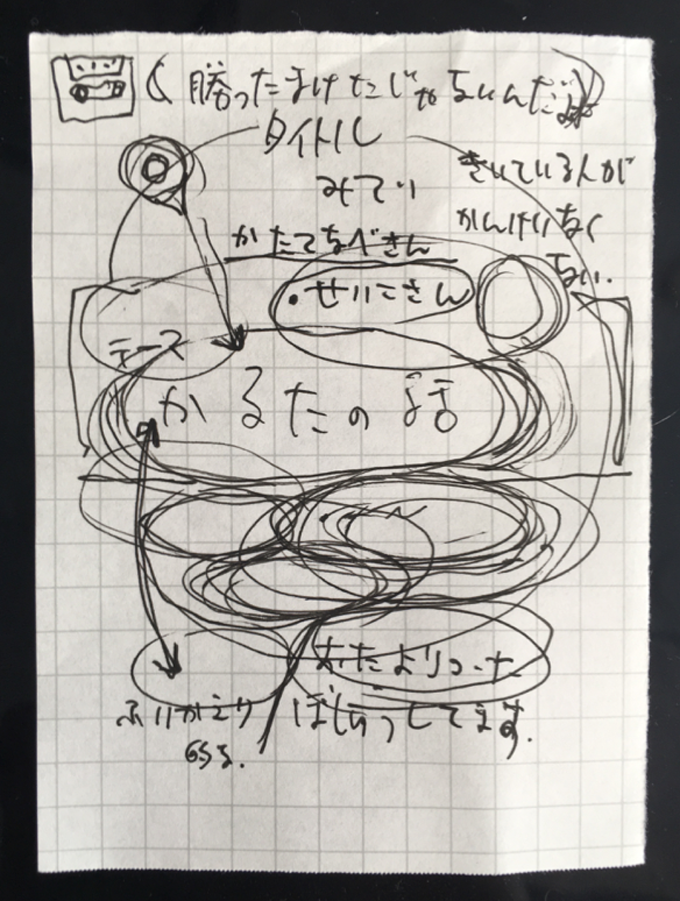 (勝ったまけたじゃないんだよ)
タイトル
みてい
きいている人が
かんけいなく
ない.
かたてなべさん
・せいこさん
テース
かるたの話
おたよりコーナー
ふりかえり
ぼしゅうしてます.